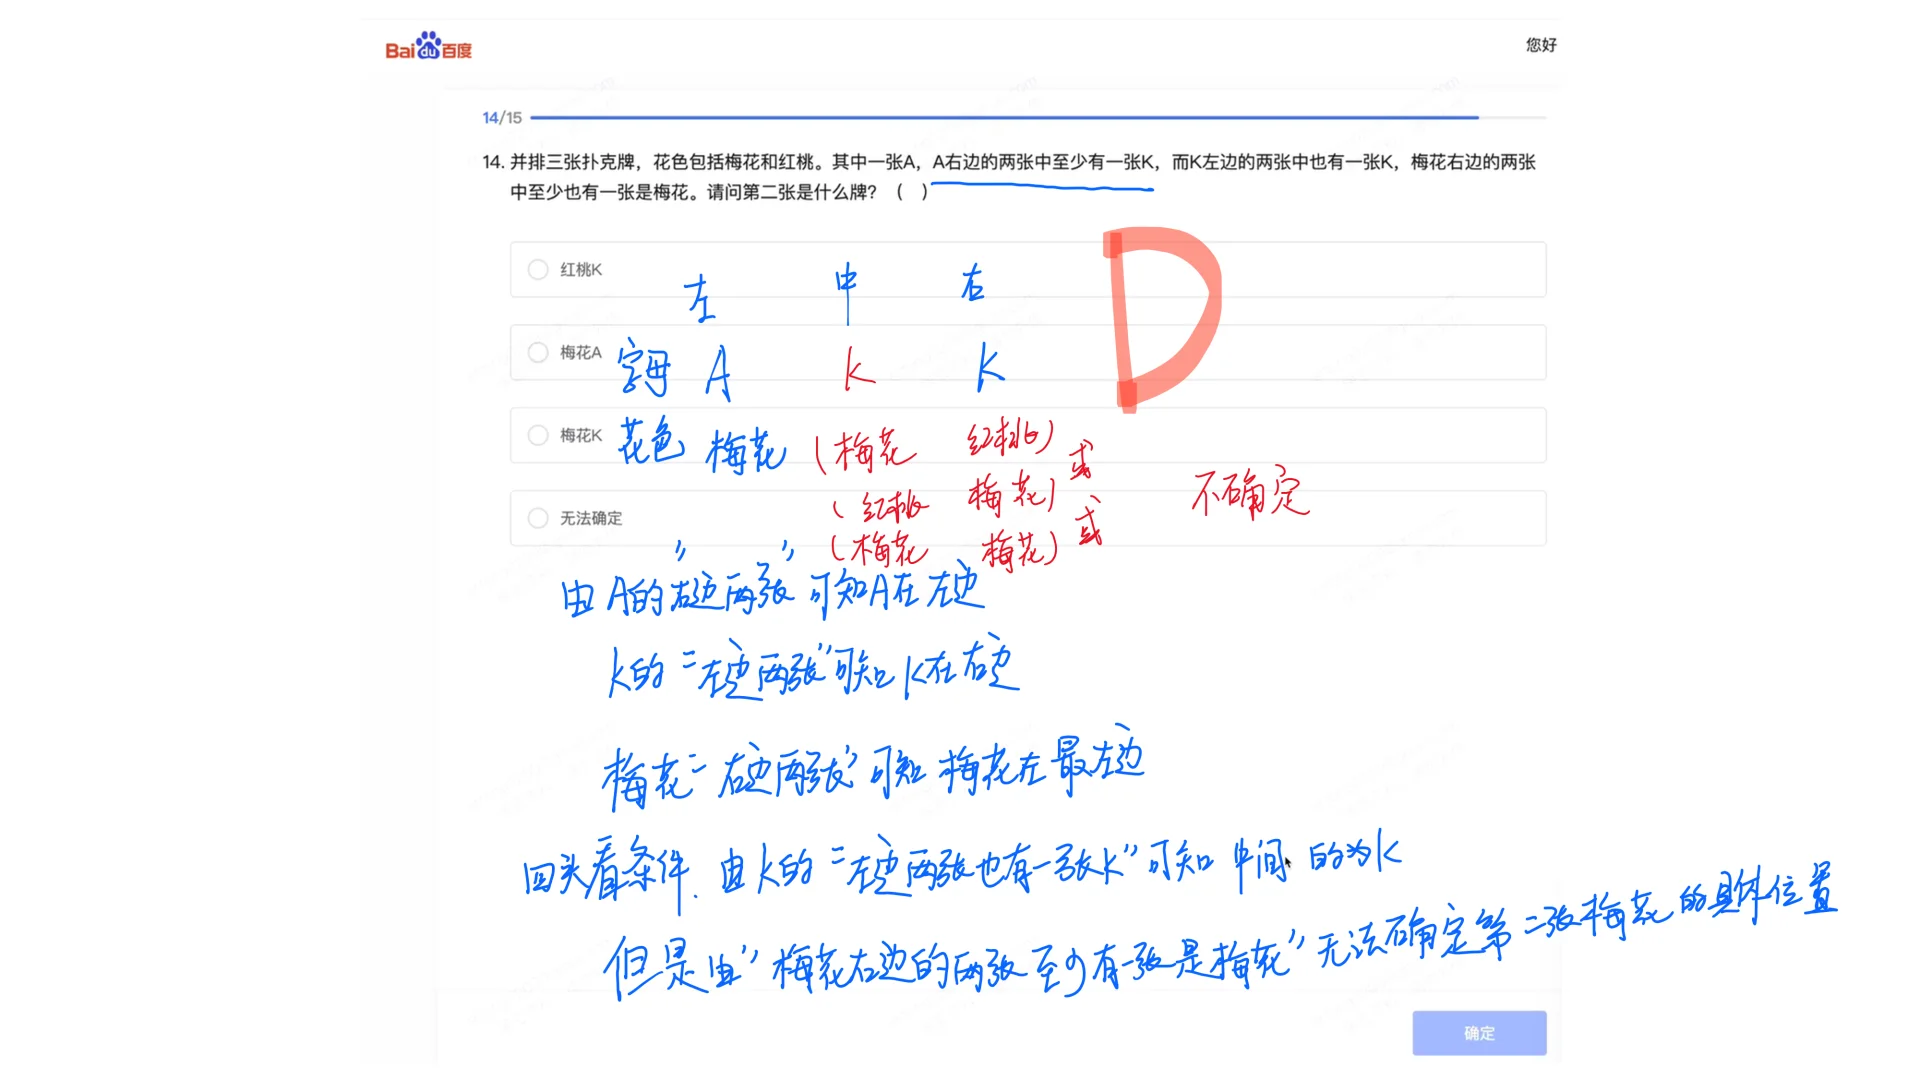 Bai du 百度
您好
14/15
14. 并排三张扑克牌，花色包括梅花和红桃。其中一张A，A右边的两张中至少有一张K，而K左边的两张中也有一张K，梅花右边的两张
中至少也有一张是梅花。请问第二张是什么牌？（ ）
红桃K
左 中 右
D
梅花A
字母 A K K
梅花K
花色 梅花 (梅花 红桃) 或
(红桃 梅花) 或
不确定
无法确定
(梅花 梅花)
由A的"右边两张"可知A在左边
K的"左边两张"可知K在右边
梅花"右边两张"可知梅花在最左边
回头看条件.由K的"左边两张也有一张K"可知中间的为K
但是由"梅花右边的两张至少有一张是梅花"无法确定第二张梅花的具体位置
确定